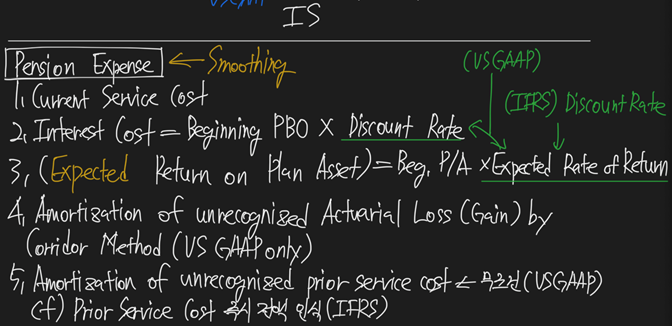 IS
Pension Expense ← Smoothing
(US GAAP)
(IFRS) Discount Rate
1, Current Service Cost
2, Interest Cost = Beginning PBO × Discount Rate
3, (Expected Return on Plan Asset) = Beg. P/A × Expected Rate of Return
4, Amortization of unrecognized Actuarial Loss (Gain) by
Corridor Method (US GAAP only)
5, Amortization of unrecognized prior service cost ← 무조건 (US GAAP)
(cf) Prior Service Cost 즉시 전액 인식 (IFRS)